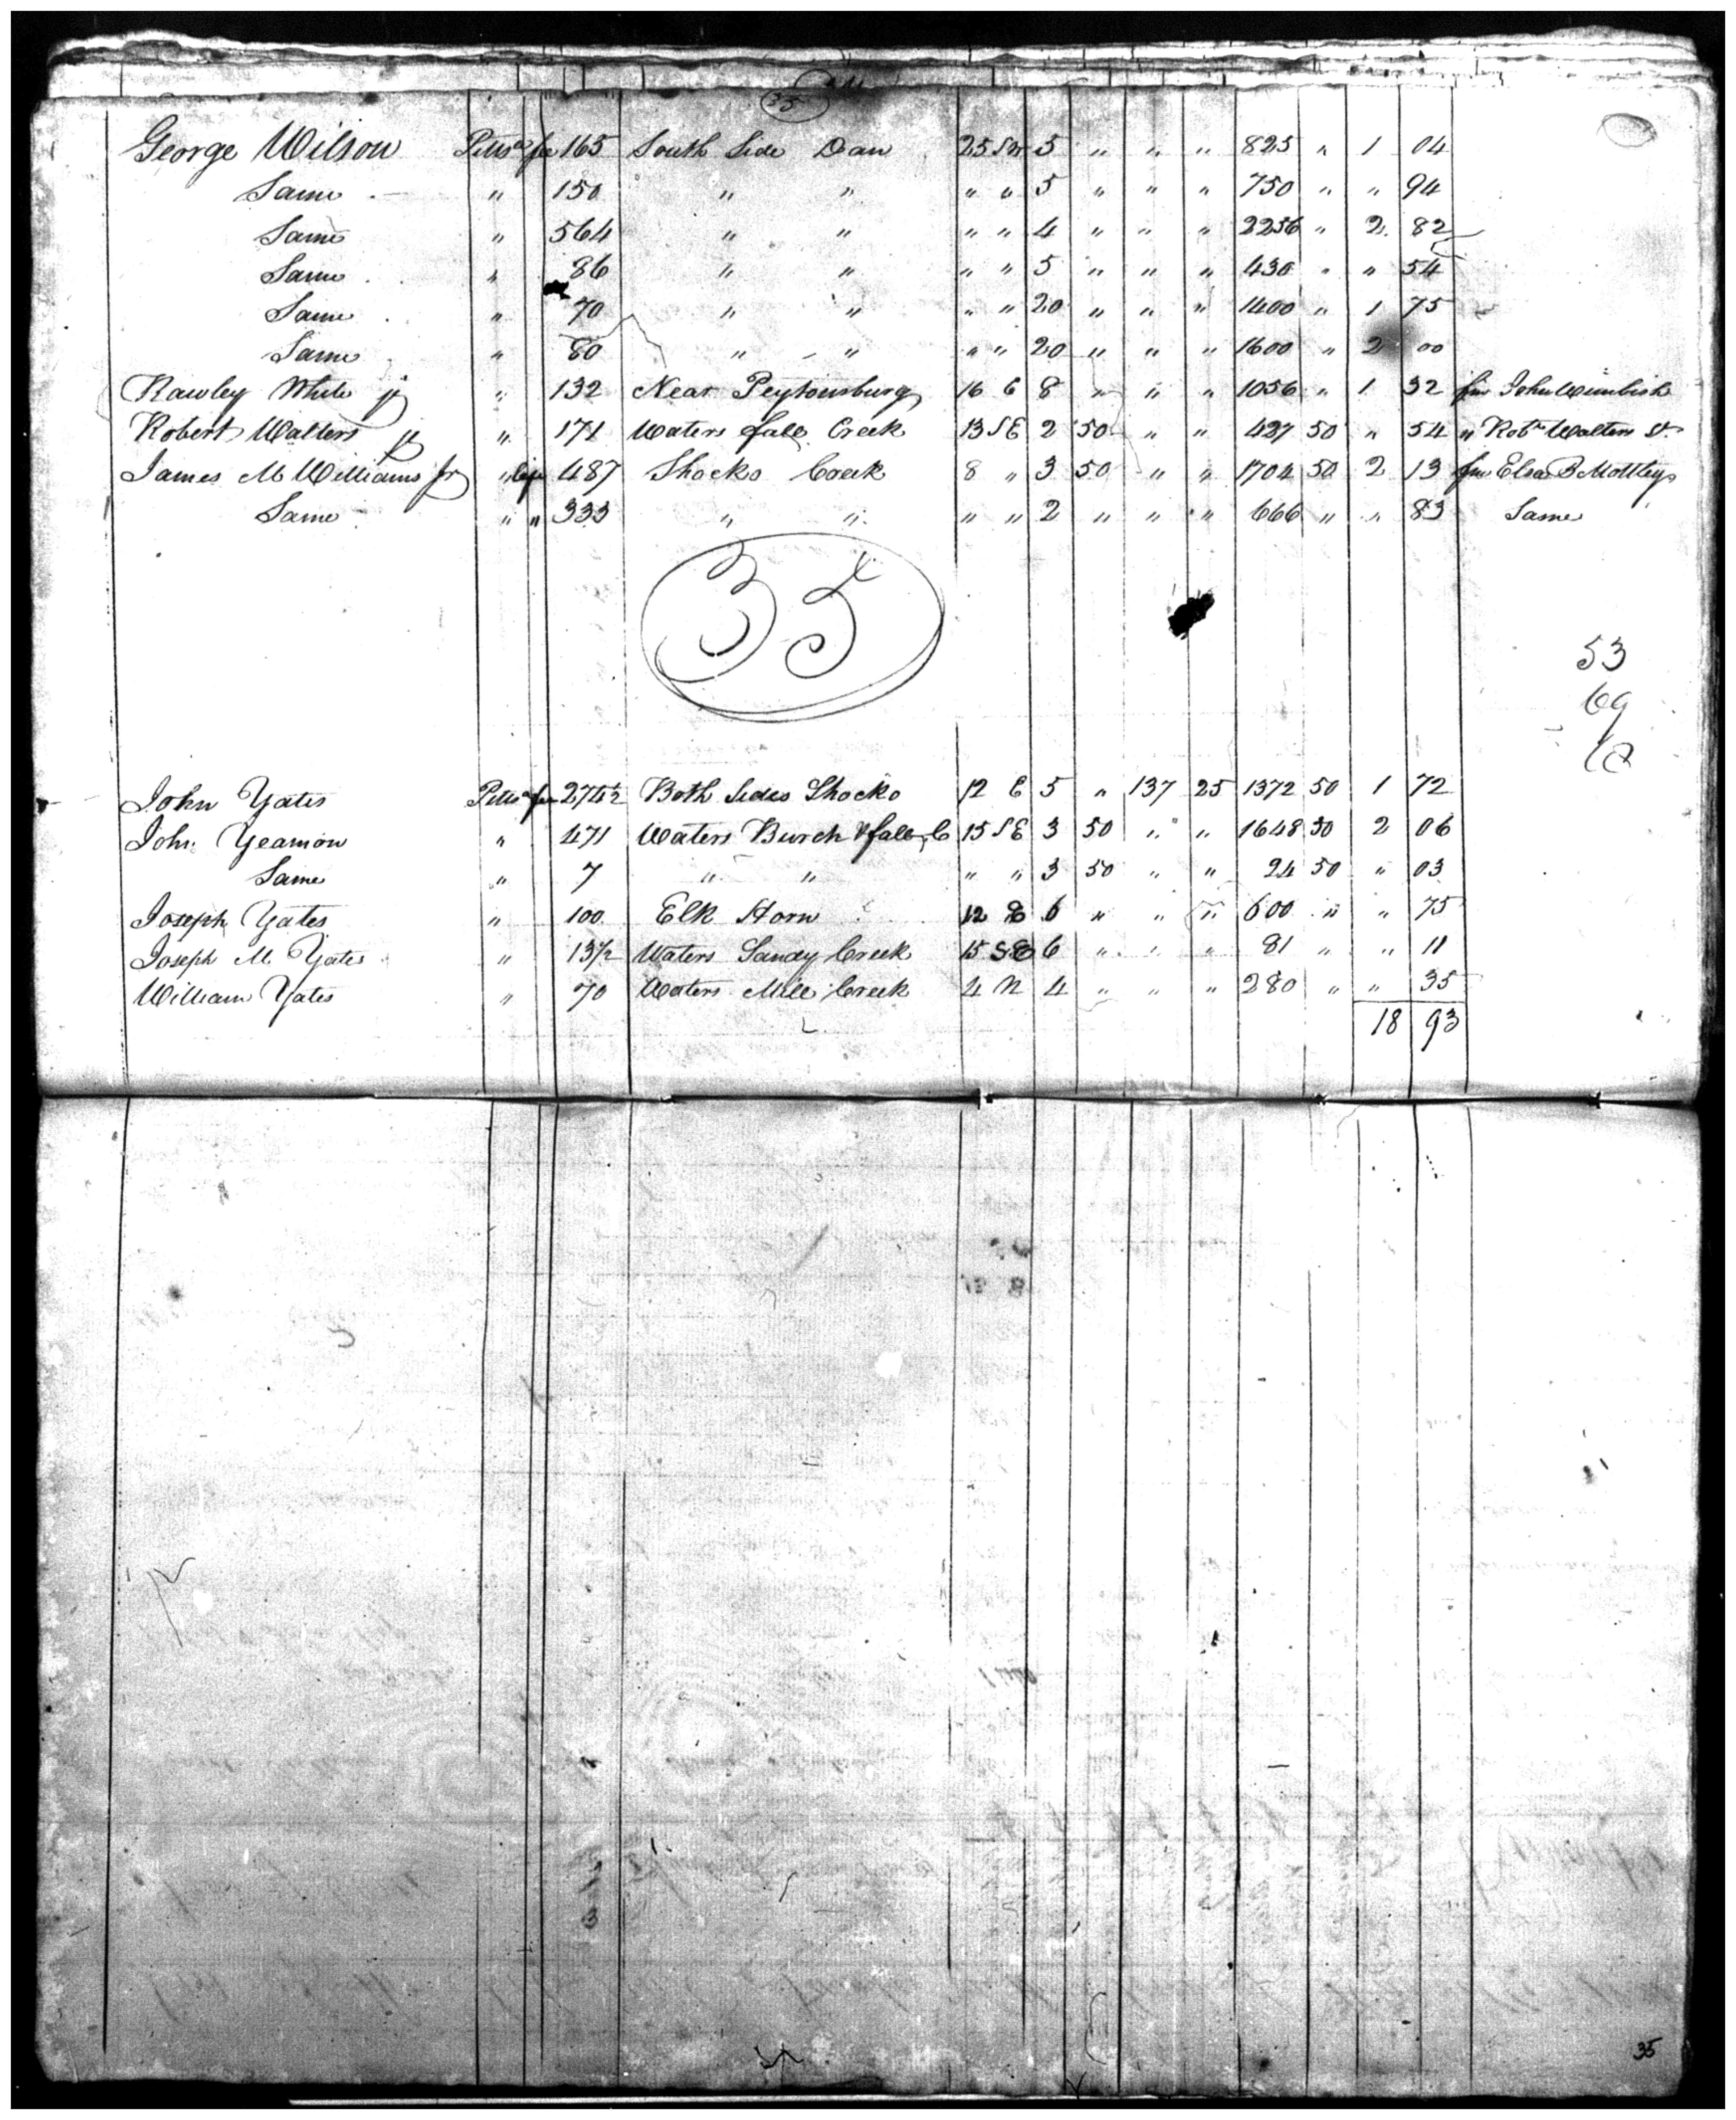 35
George Wilson Pittsa fee 165 South Side Dan 25 SW 5 " " " 825 " 1 04
Same " 150 " " " " 5 " " " 750 " " 94
Same " 564 " " " " 4 " " " 2256 " 2 82
Same " 86 " " " " 5 " " " 430 " " 54
Same " 70 " " " " 20 " " " 1400 " 1 75
Same " 80 " " " " 20 " " " 1600 " 2 00
Rawley White jr " 132 Near Peytonsburg 16 E 8 " " " 1056 " 1 32 fm John Wimbish
Robert Walters jr " 171 Waters fall Creek 13 SE 2 50 " " 427 50 " 54 " Robt Walters Sr
James M Williams Jr " life 487 Shocko Creek 8 " 3 50 " " 1704 50 2 13 fm Eliza B Mottley
Same " " 333 " " " " 2 " " " 666 " " 83 Same
35
53
69
John Yates Pittsa fee 274½ Both Sides Shocko 12 E 5 " 137 25 1372 50 1 72
John Yeamon " 471 Waters Burch & fall C 15 SE 3 50 " " 1648 50 2 06
Same " 7 " " " " 3 50 " " 24 50 " 03
Joseph Yates " 100 Elk Horn 12 E 6 " " " 600 " " 75
Joseph M. Yates " 13½ Waters Sandy Creek 15 SE 6 " " " 81 " " 11
William Yates " 70 Waters Mill Creek 4 N 4 " " " 280 " " 35
18 93
35